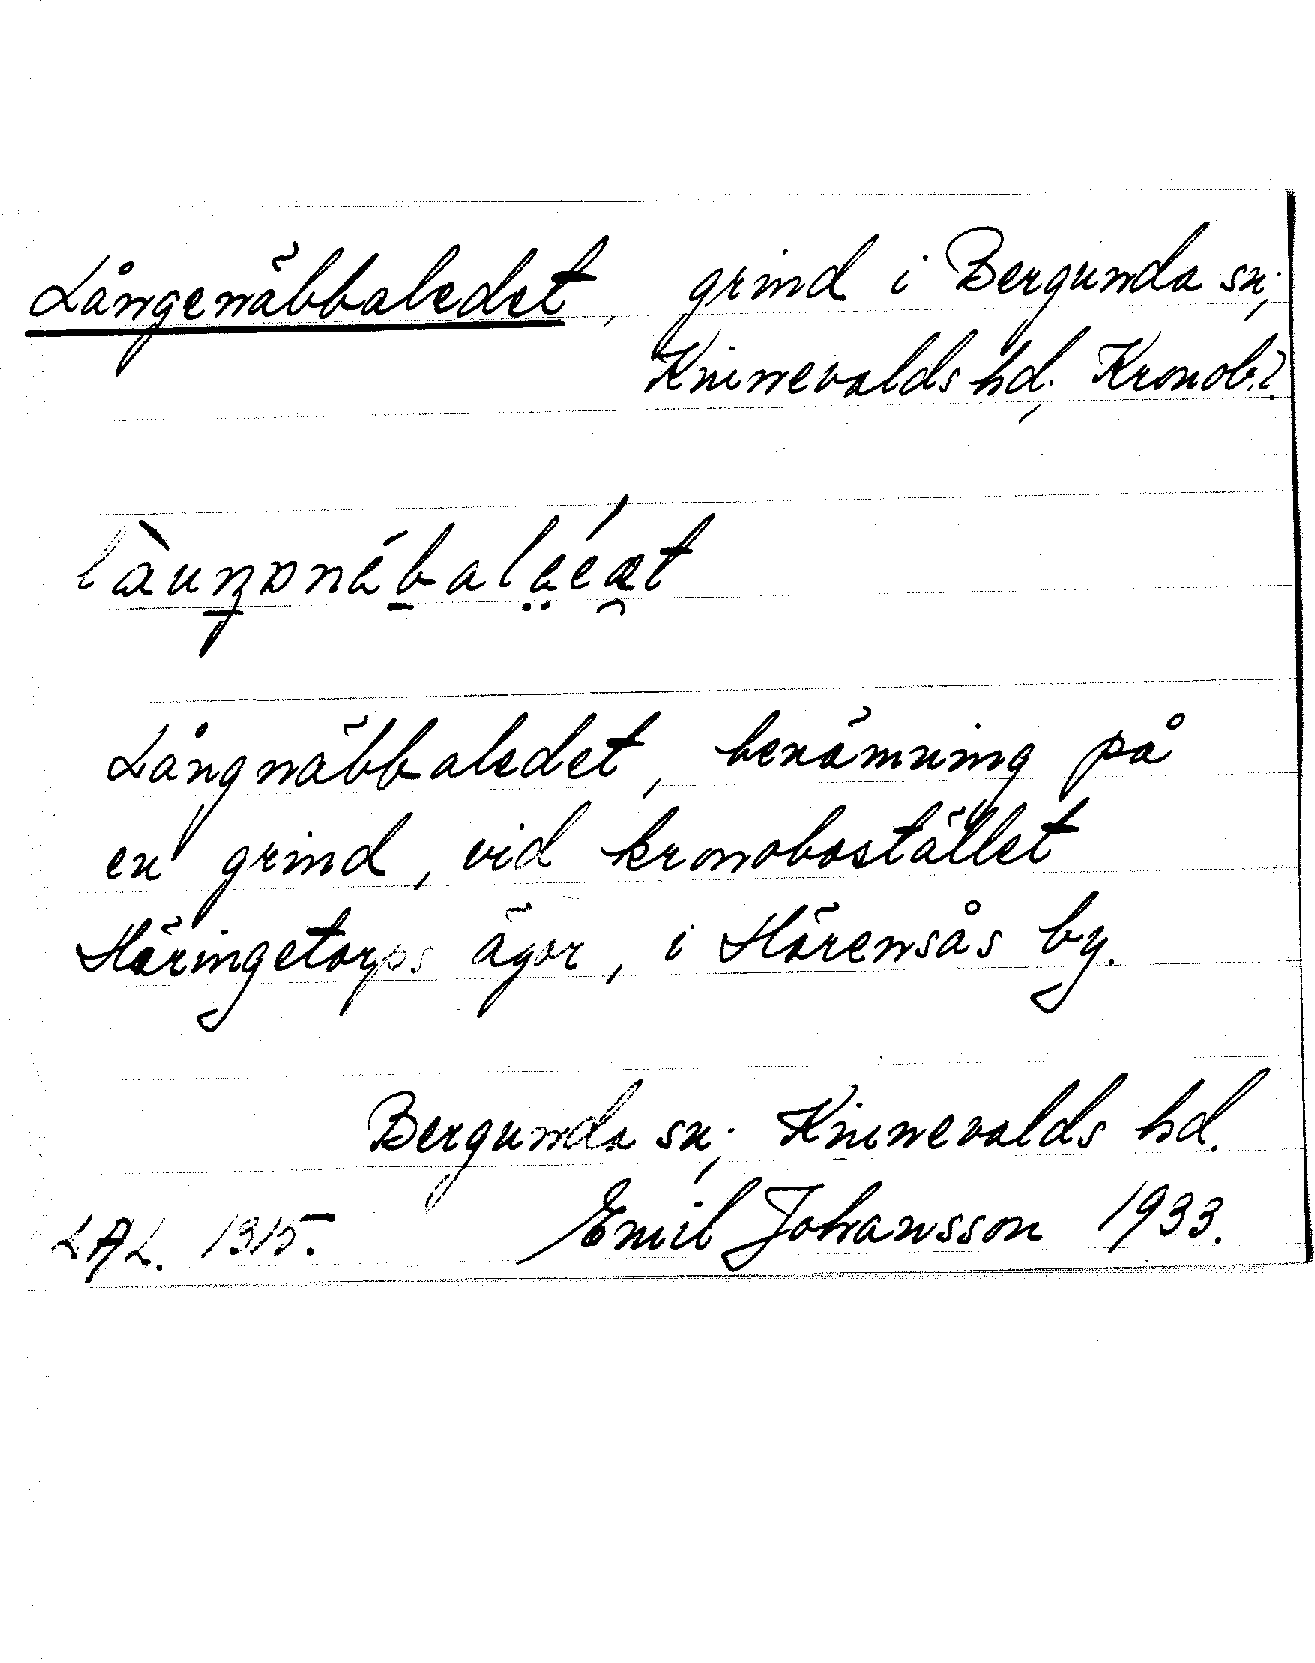 Långenäbbaledet, grind i Bergunda sn,
Kinnevalds hd, Kronob.l.
Långnäbbaledet, benämning på
en grind, vid kronobostället
Häringetorps ägor, i Hörensås by.
Bergunda sn, Kinnevalds hd.
LAL. 1315. Emil Johansson 1933.